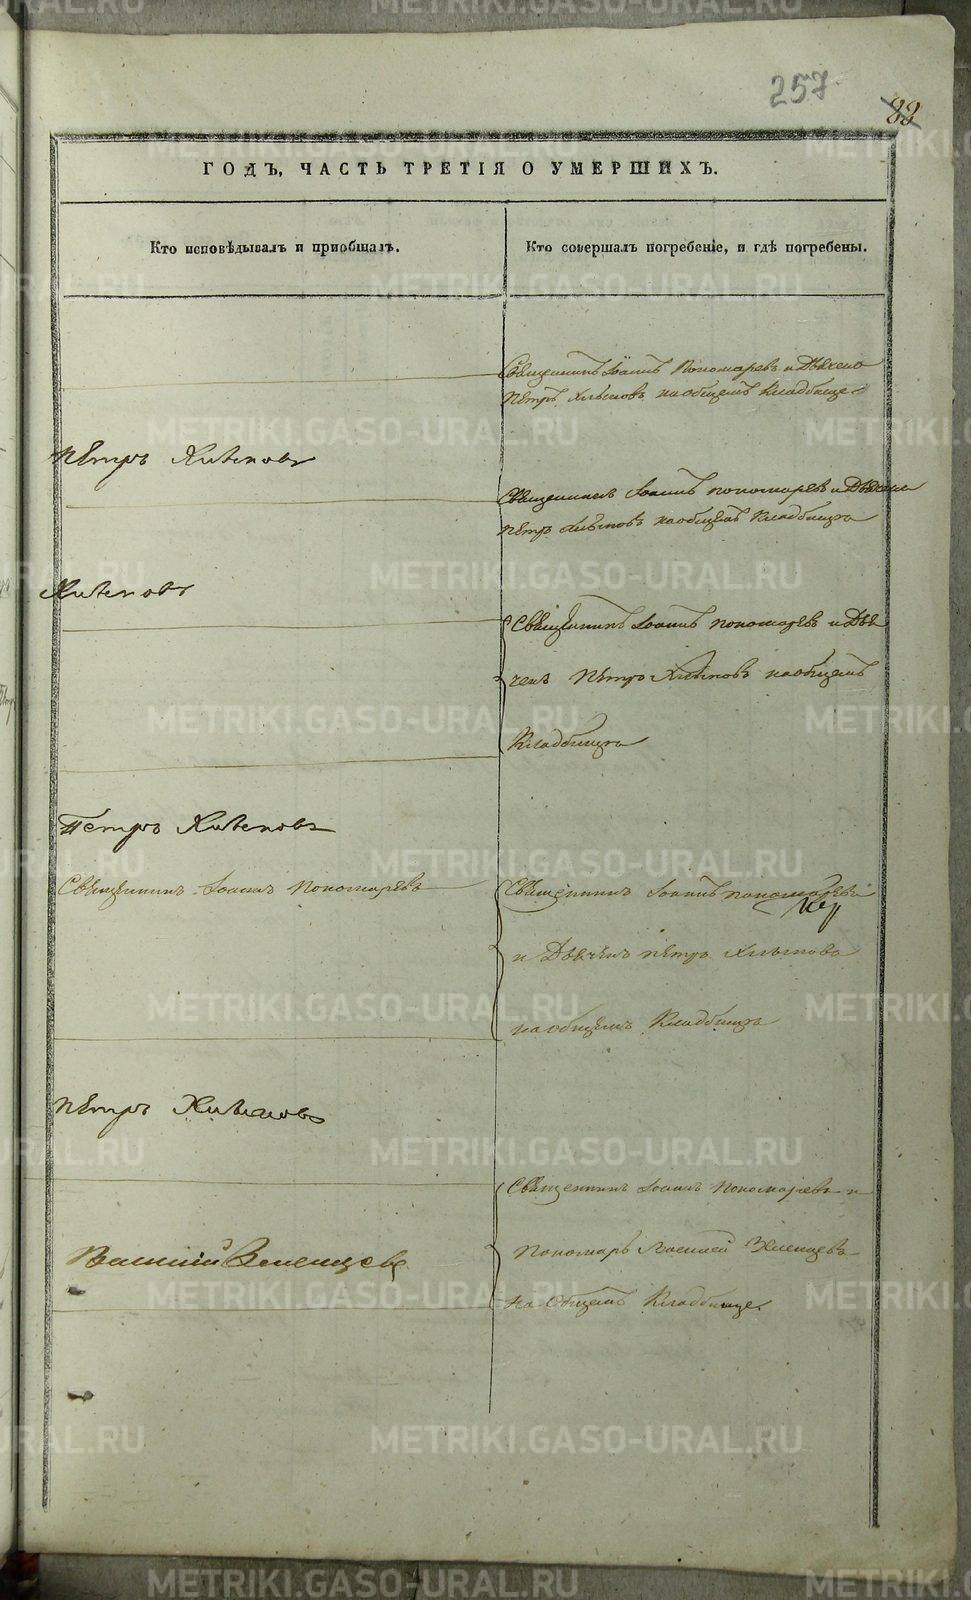 257
88
ГОДЪ, ЧАСТЬ ТРЕТІЯ О УМЕРШИХЪ.
Кто исповѣдывалъ и пріобщалъ.
Кто совершалъ погребеніе, и гдѣ погребены.
Священникъ Іоаннъ Пономаревъ и Дьячекъ
Петръ Хлыновъ на общемъ Кладбище
Петръ Хлыновъ
Священникъ Іоаннъ Пономаревъ и Дьячекъ
Петръ Хлыновъ на общемъ Кладбищѣ
Хлыновъ
Священникъ Іоаннъ Пономаревъ и Дья
чекъ Петръ Хлыновъ на общемъ
Кладбищѣ
Петръ Хлыновъ
Священникъ Іоаннъ Пономаревъ
Священникъ Іоаннъ Пономаревъ
и Дьячекъ Петръ Хлыновъ
на общемъ Кладбищѣ
Петръ Хлыновъ
Священникъ Іоаннъ Пономаревъ и
Пономарь
на Общемъ Кладбище.
METRIKI.GASO-URAL.RU